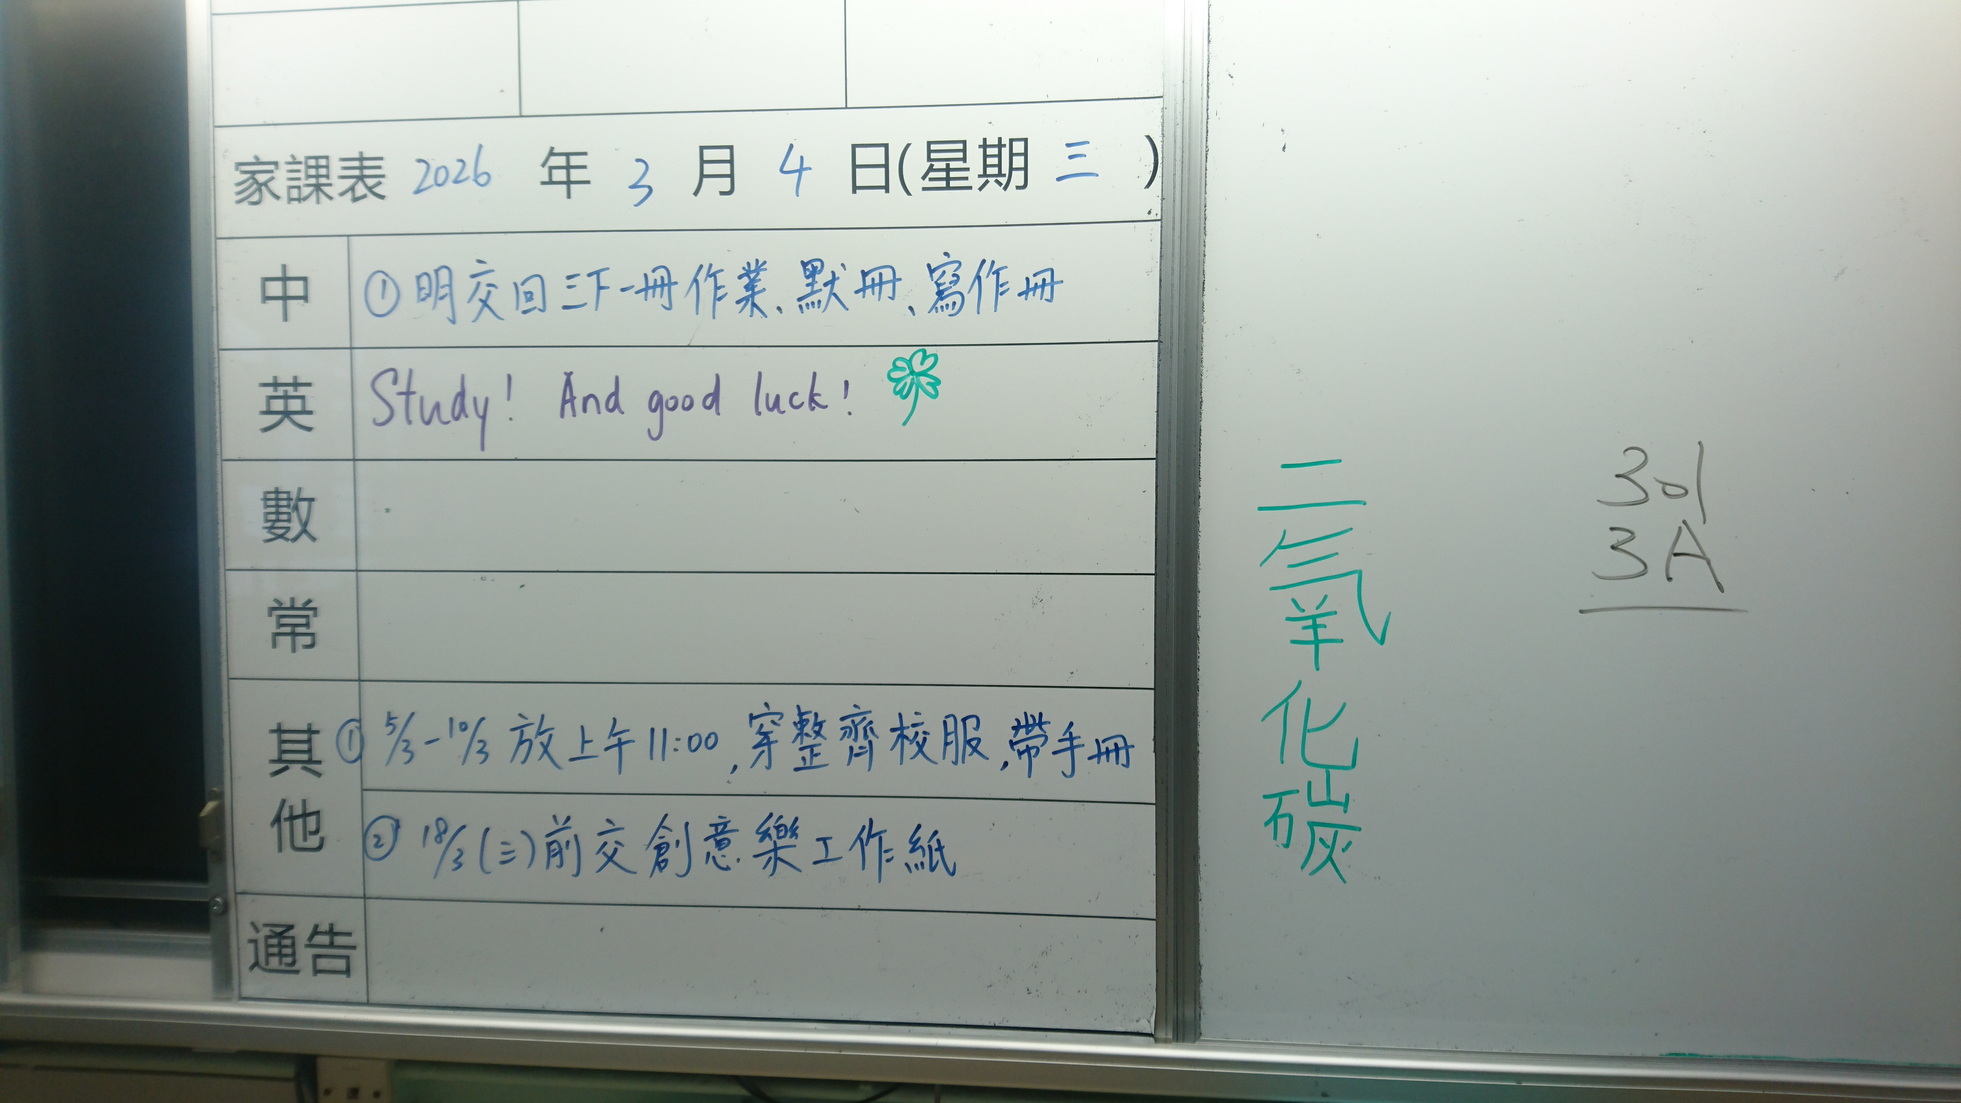 家課表 2026 年 3 月 4 日(星期 三 )
中 ①明交回三下一冊作業、默冊、寫作冊
英 Study! And good luck!
數
常
其他 ① 5/3-10/3 放上午11:00,穿整齊校服,帶手冊
② 18/3(三)前交創意樂工作紙
通告
二氧化碳
301
3A